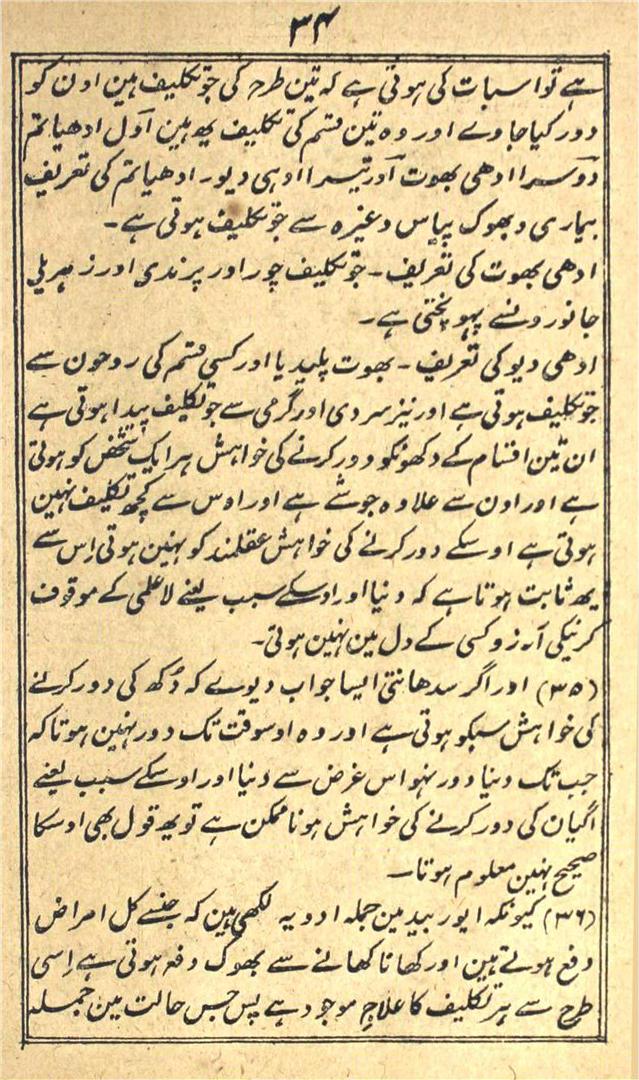 ۳۴
ہے تو اسبات کی ہوتی ہے کہ تین طرح کی جو تکلیف ہین اون کو
دور کیا جاوے اور وہ تین قسم کی تکلیف یھ ہین اول ادھیاتم
دوسرا ادھی بھوت اور تیسرا ادہی دیو۔ ادھیاتم کی تعریف
بیماری و بھوک پیاس وغیرہ سے جو تکلیف ہوتی ہے۔
ادھی بھوت کی تعریف۔ جو تکلیف چور اور پرندی اور زہریلی
جانورونسے پہونچتی ہے۔
ادھی دیو کی تعریف۔ بھوت پلید یا اور کسی قسم کی روحون سے
جو تکلیف ہوتی ہے اور نیز سردی اور گرمی سے جو تکلیف پیدا ہوتی ہے
ان تین اقسام کے دکھونکو دور کرنے کی خواہش ہر ایک شخص کو ہوتی
ہے اور اون سے علاوہ جو شے ہے اور اوس سے کچھ تکلیف نہین
ہوتی ہے اوسکے دور کرنے کی خواہش عقلمند کو نہین ہوتی اِس سے
یھ ثابت ہوتا ہے کہ دنیا اور اوسکے سبب یعنے لاعلمی کے موقوف
کرنیکی آرزو کسی کے دل مین نہین ہوتی۔
(۳۵) اور اگر سدھانتی ایسا جواب دیوے کہ دُکھ کی دور کرنے
کی خواہش سبکو ہوتی ہے اور وہ اوسوقت تک دور نہین ہوتا کہ
جب تک دنیا دور نہو اس غرض سے دنیا اور اوسکے سبب یعنے
اگیان کی دور کرنے کی خواہش ہونا ممکن ہے تو یھ قول بھی اوسکا
صحیح نہین معلوم ہوتا۔
(۳۶) کیونکہ ایوربید مین جملہ ادویہ لکھی ہین کہ جنسے کل امراض
دفع ہوتے ہین اور کھانا کھانے سے بھوک دفع ہوتی ہے اِسی
طرح سے ہر تکلیف کا علاج موجود ہے پس جس حالت مین جملہ